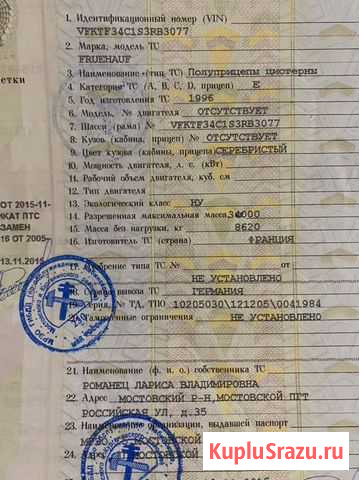 1. Идентификационный номер (VIN)
VFKTF34C1S3RB3077
2. Марка, модель ТС
FRUEHAUF
3. Наименование (тип ТС) Полуприцепы цистерны
4. Категория ТС (A, B, C, D, прицеп) E
5. Год изготовления ТС 1996
6. Модель, № двигателя ОТСУТСТВУЕТ
7. Шасси (рама) № VFKTF34C1S3RB3077
8. Кузов (кабина, прицеп) № ОТСУТСТВУЕТ
9. Цвет кузова (кабины, прицепа) СЕРЕБРИСТЫЙ
10. Мощность двигателя, л. с. (кВт)
11. Рабочий объем двигателя, куб. см
12. Тип двигателя
13. Экологический класс НУ
14. Разрешенная максимальная масса, 34000
15. Масса без нагрузки, кг 8620
16. Изготовитель ТС (страна) ФРАНЦИЯ
17. Одобрение типа ТС № от
НЕ УСТАНОВЛЕНО
18. Страна вывоза ТС ГЕРМАНИЯ
19. Серия, № ТД, ТПО 10205030\121205\0041984
20. Таможенные ограничения НЕ УСТАНОВЛЕНО
21. Наименование (ф. и. о.) собственника ТС
РОМАНЕЦ ЛАРИСА ВЛАДИМИРОВНА
22. Адрес МОСТОВСКИЙ Р-Н, МОСТОВСКОЙ ПГТ
РОССИЙСКАЯ УЛ, д.35
23. Наименование организации, выдавшей паспорт
24. Адрес
етки
ОТ 2015-11-
КАТ ПТС
ЗАМЕН
16 ОТ 2005-
13.11.201
KupluSrazu.ru